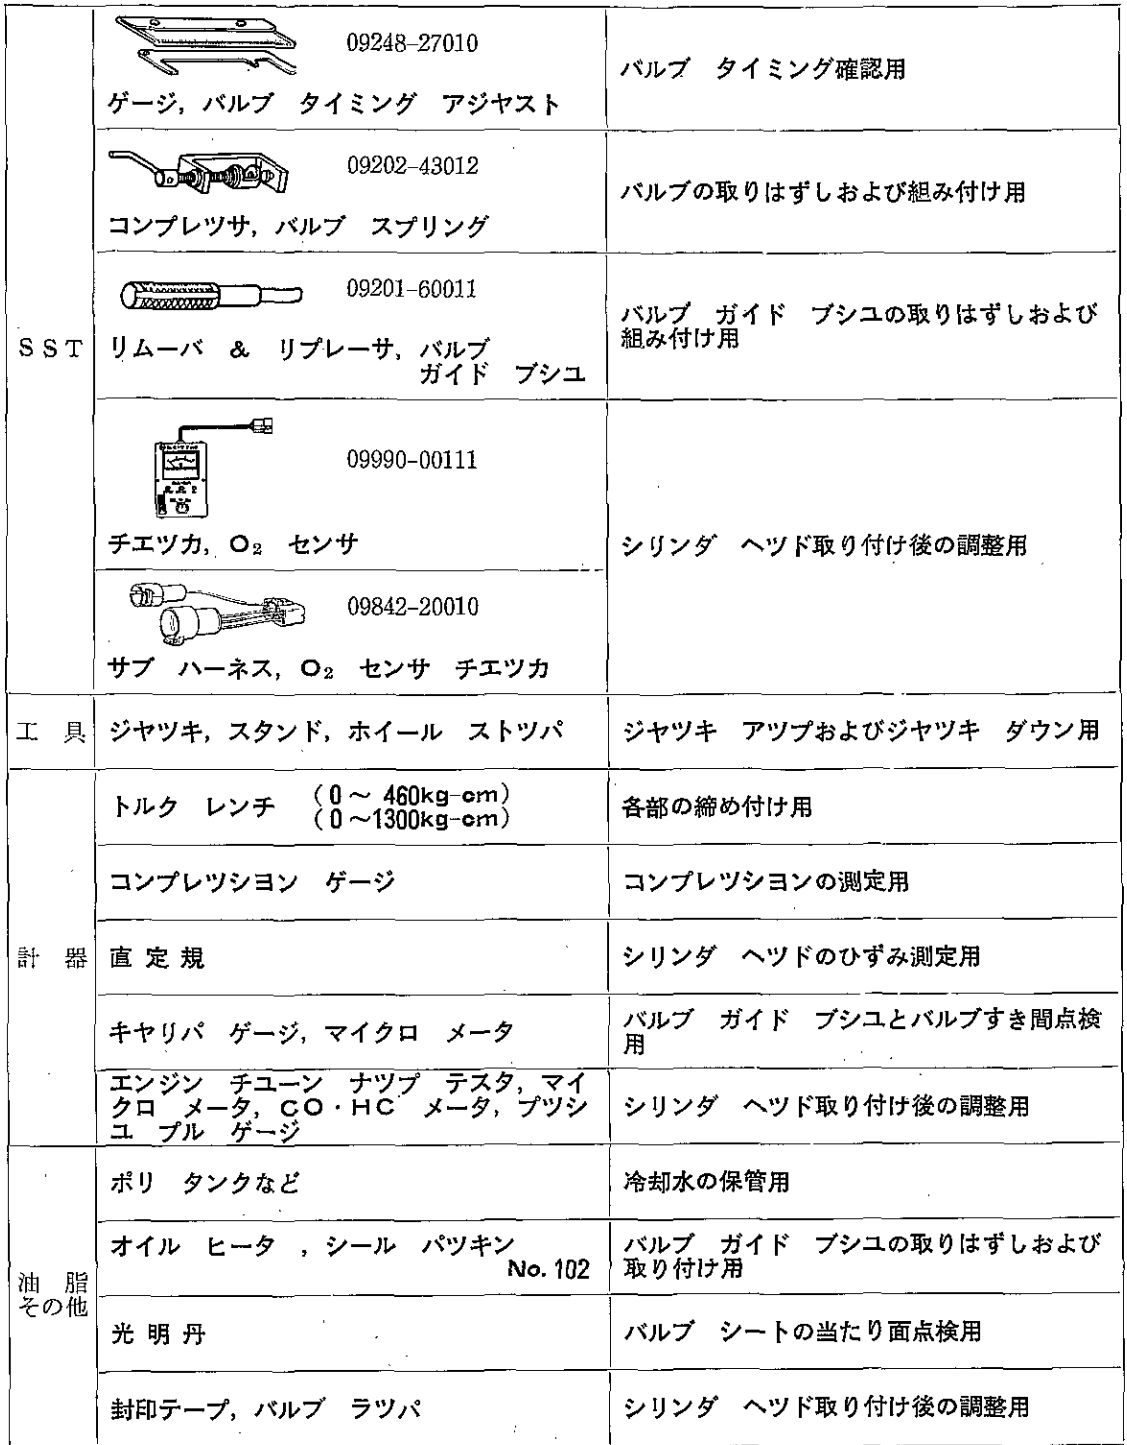 09248-27010
ゲージ, バルブ タイミング アジヤスト
バルブ タイミング確認用
09202-43012
コンプレツサ, バルブ スプリング
バルブの取りはずしおよび組み付け用
SST
09201-60011
リムーバ & リプレーサ, バルブ
ガイド ブシユ
バルブ ガイド ブシユの取りはずしおよび
組み付け用
09990-00111
チエツカ, O₂ センサ
09842-20010
サブ ハーネス, O₂ センサ チエツカ
シリンダ ヘツド取り付け後の調整用
工 具
ジヤツキ, スタンド, ホイール ストツパ
ジヤツキ アツプおよびジヤツキ ダウン用
計 器
トルク レンチ
(0～ 460kg-cm)
(0～1300kg-cm)
各部の締め付け用
コンプレツシヨン ゲージ
コンプレツシヨンの測定用
直 定 規
シリンダ ヘツドのひずみ測定用
キヤリパ ゲージ, マイクロ メータ
バルブ ガイド ブシユとバルブすき間点検
用
エンジン チユーン ナツプ テスタ, マイ
クロ メータ, CO・HC メータ, プツシ
ユ プル ゲージ
シリンダ ヘツド取り付け後の調整用
油 脂
その他
ポリ タンクなど
冷却水の保管用
オイル ヒータ , シール パツキン
No. 102
バルブ ガイド ブシユの取りはずしおよび
取り付け用
光 明 丹
バルブ シートの当たり面点検用
封印テープ, バルブ ラツパ
シリンダ ヘツド取り付け後の調整用